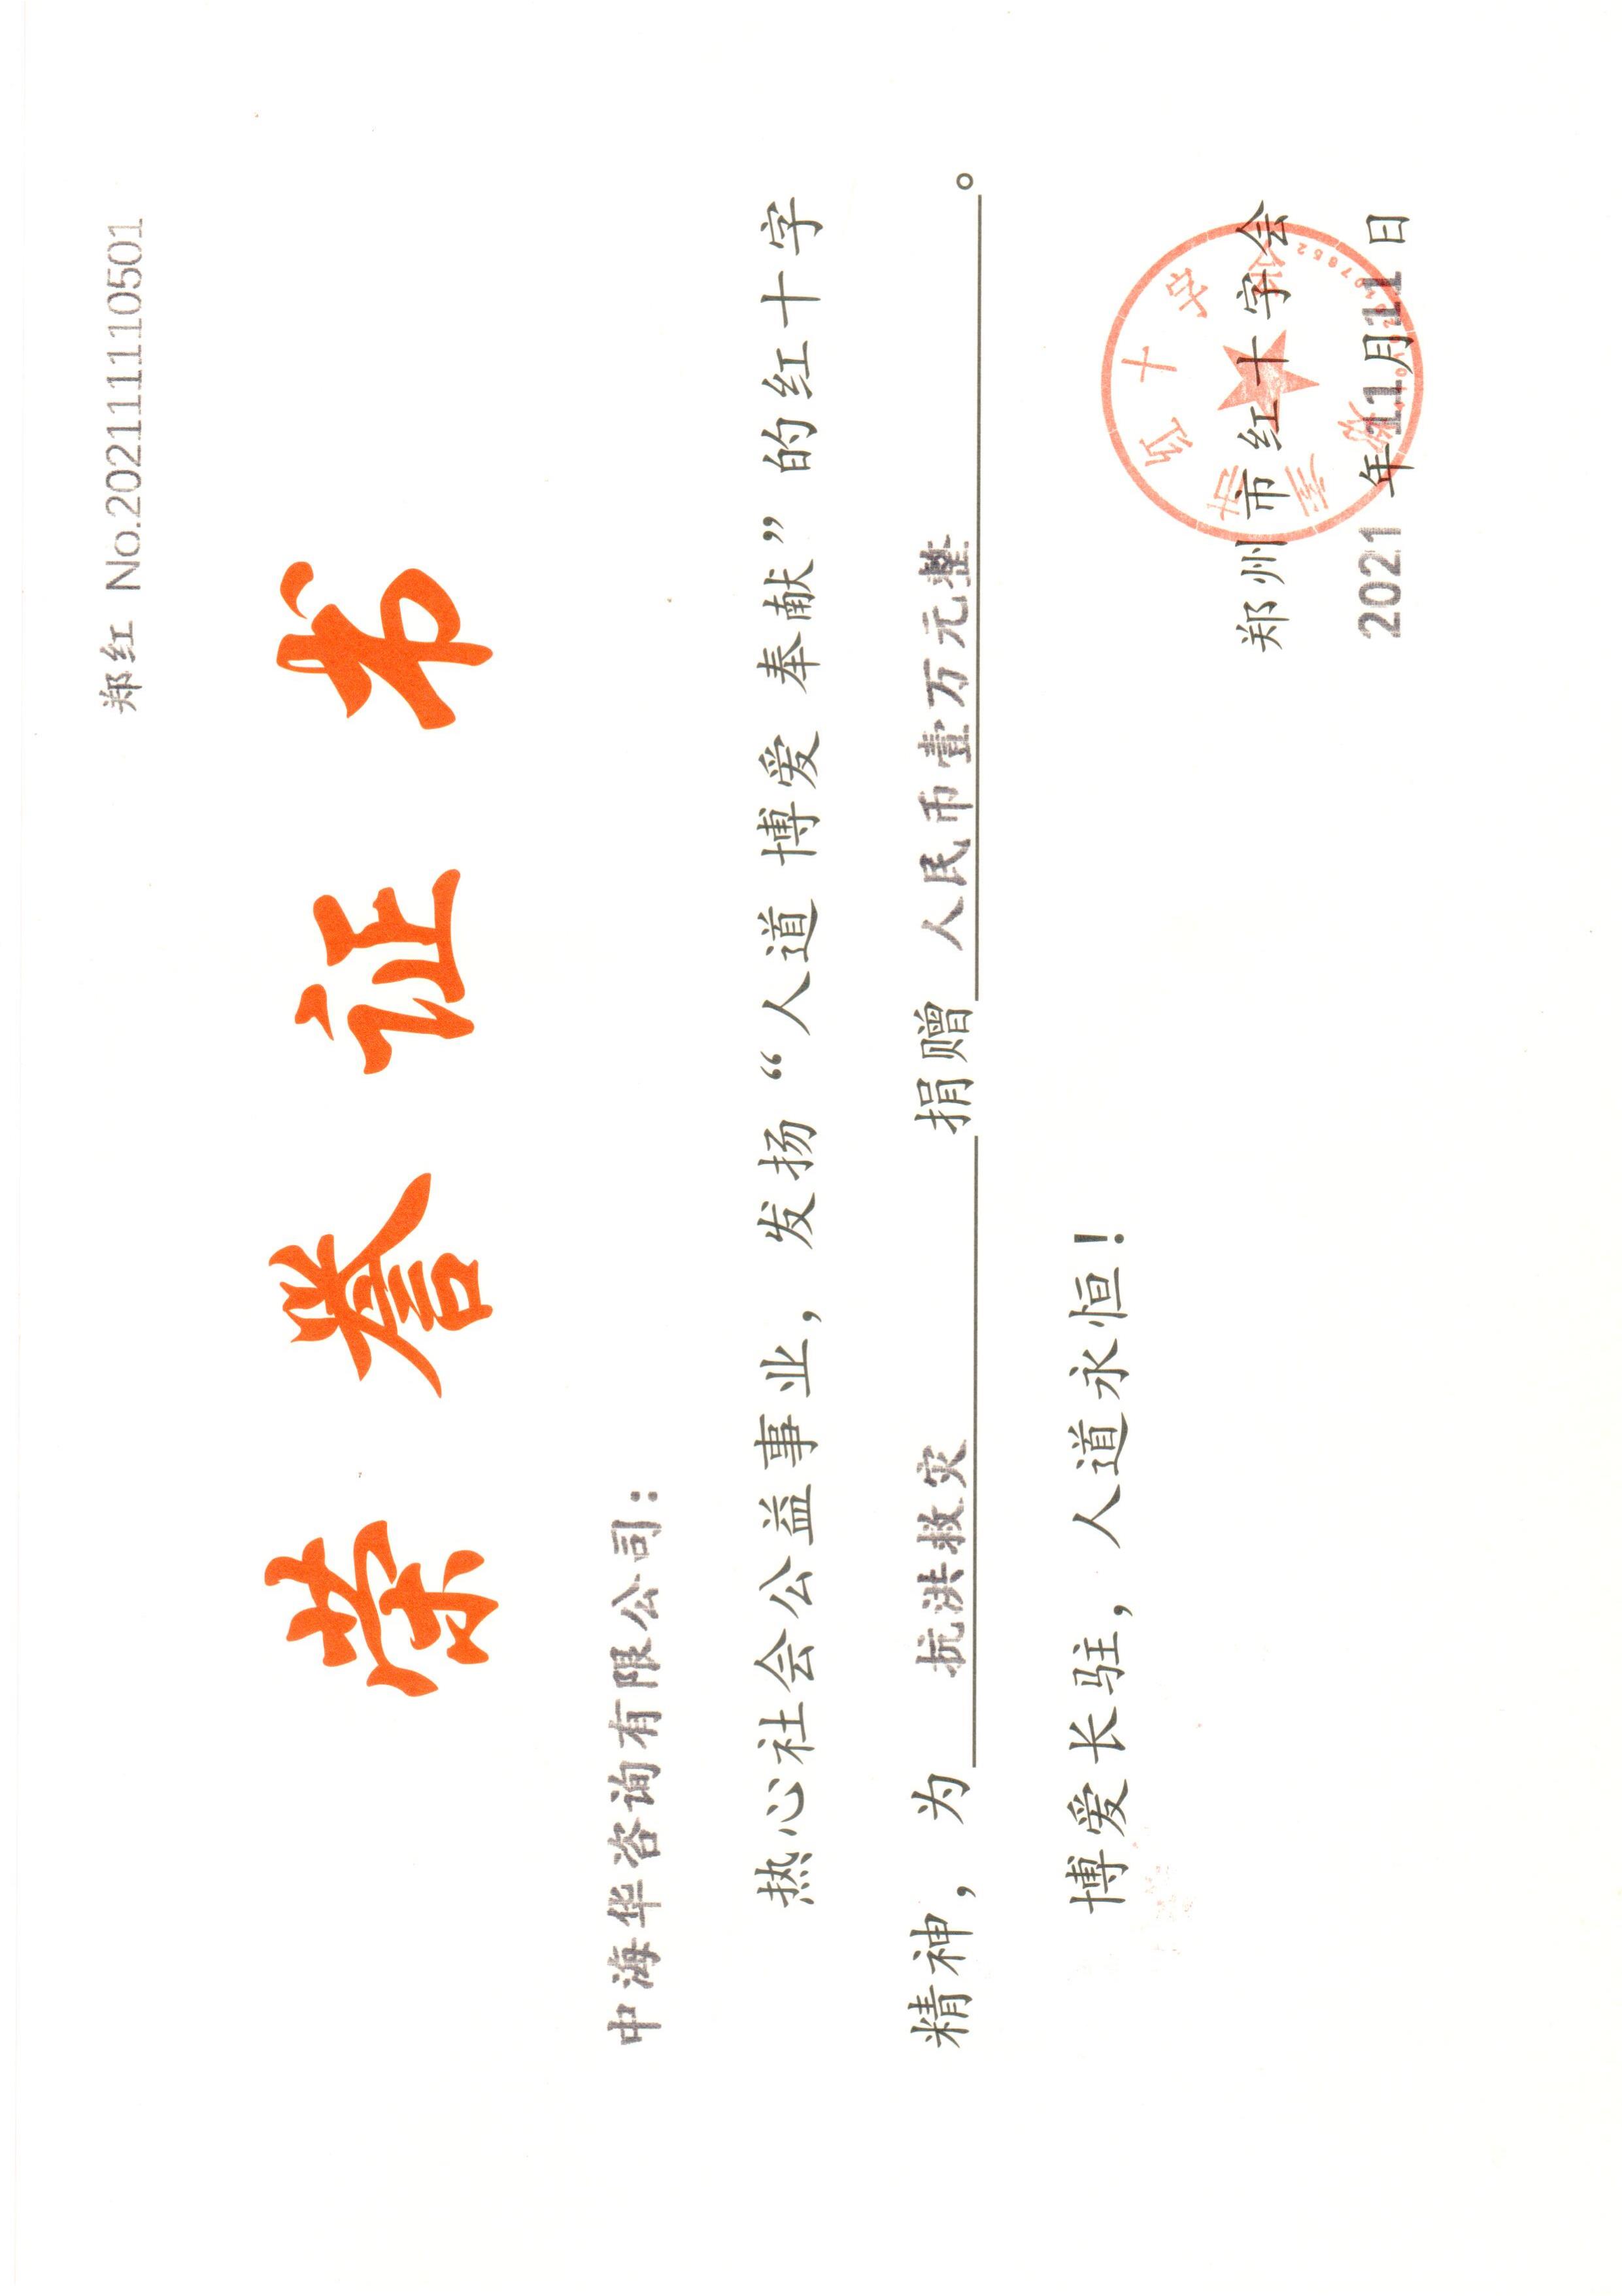 郑红 No.20211110501
荣誉证书
中海华咨询有限公司：
热心社会公益事业，发扬“人道 博爱 奉献”的红十字
精神，为 抗洪救灾 捐赠 人民币壹万元整 。
博爱长驻，人道永恒！
郑州市红十字会
2021年11月11日
郑州市红十字会